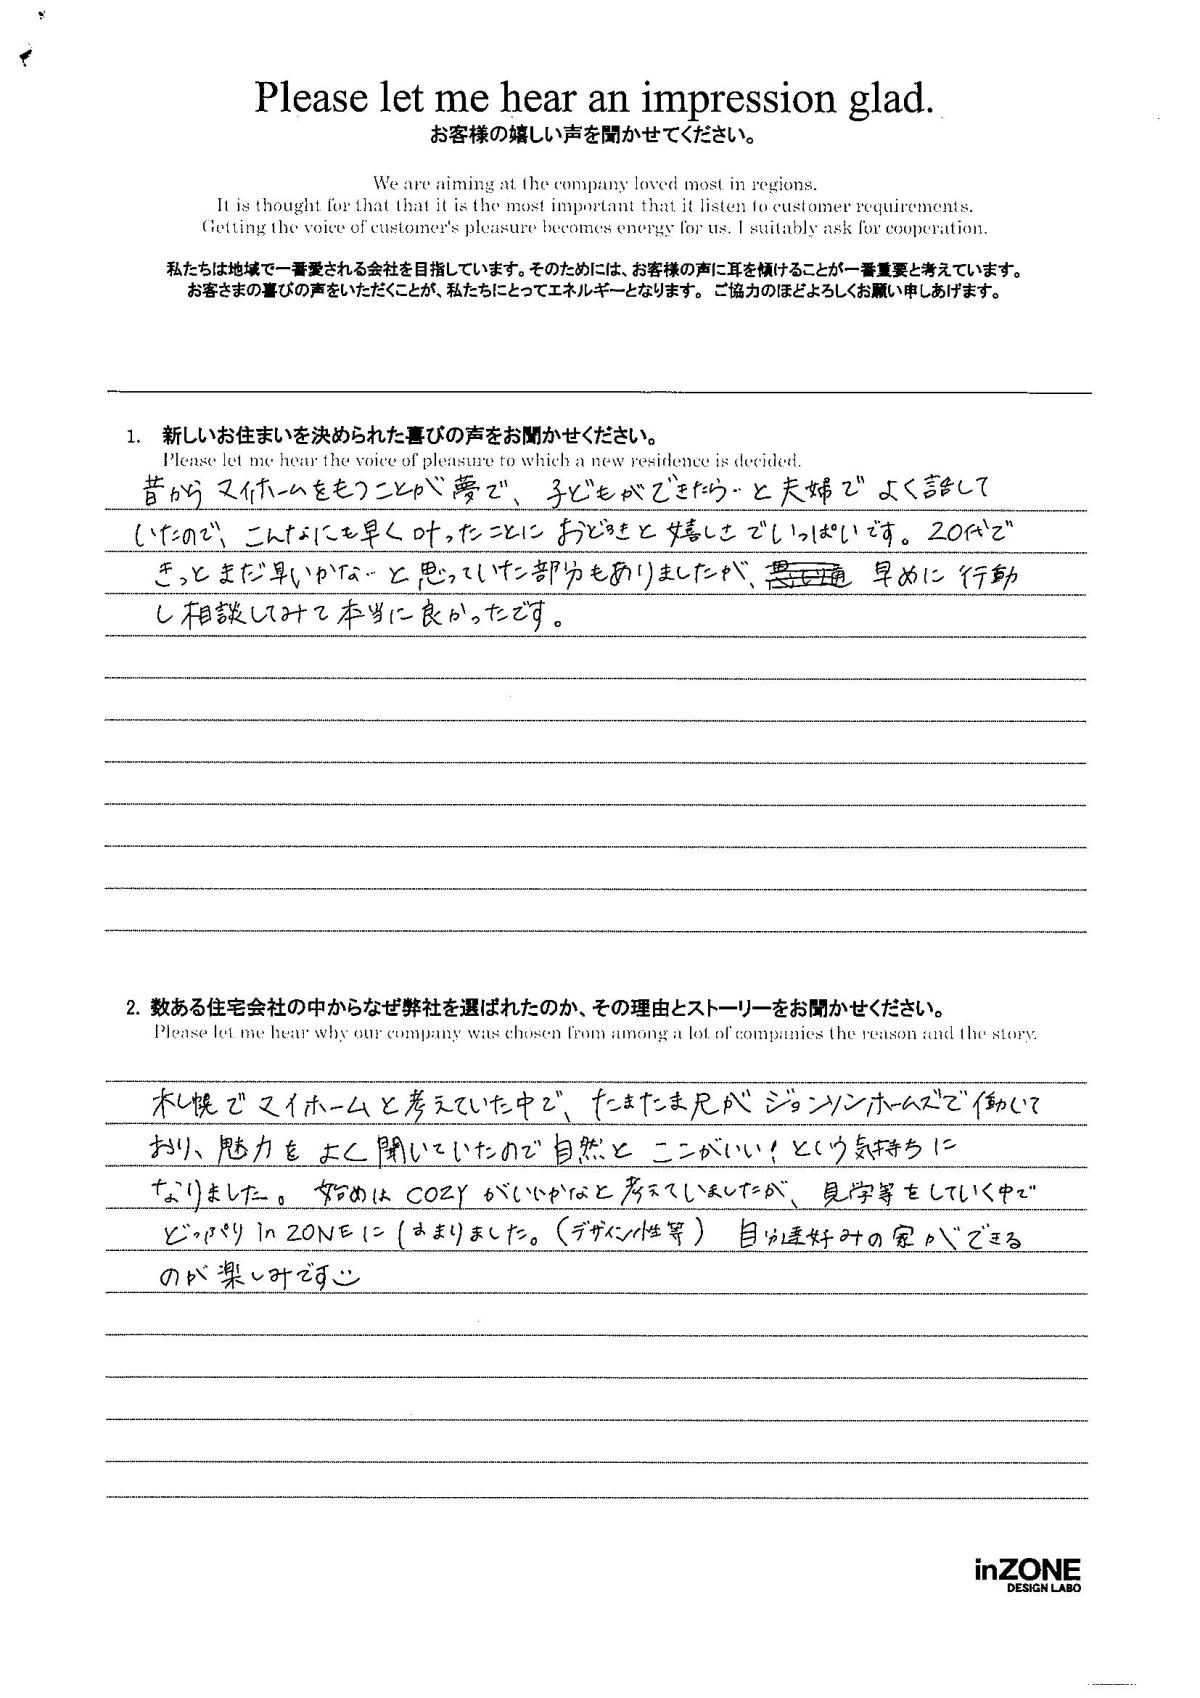 Please let me hear an impression glad.
お客様の嬉しい声を聞かせてください。
We are aiming at the company loved most in regions.
It is thought for that that it is the most important that it listen to customer requirements.
Getting the voice of customer's pleasure becomes energy for us. I suitably ask for cooperation.
私たちは地域で一番愛される会社を目指しています。そのためには、お客様の声に耳を傾けることが一番重要と考えています。
お客さまの喜びの声をいただくことが、私たちにとってエネルギーとなります。 ご協力のほどよろしくお願い申しあげます。
1. 新しいお住まいを決められた喜びの声をお聞かせください。
Please let me hear the voice of pleasure to which a new residence is decided.
昔から マイホームをもつことが夢で、子どもができたら‥と夫婦で よく話して
いたので、こんなにも早く叶ったことに おどろきと 嬉しさでいっぱいです。20代で
きっと まだ早いかな‥と思っていた部分もありましたが、 早めに 行動
し 相談してみて 本当に 良かったです。
2. 数ある住宅会社の中からなぜ弊社を選ばれたのか、その理由とストーリーをお聞かせください。
Please let me hear why our company was chosen from among a lot of companies the reason and the story.
札幌で マイホームと考えていた中で、たまたま兄が ジョンソンホームズで働いて
おり、魅力を よく聞いていたので自然と ここがいい！という気持ちに
なりました。 始めは COZY がいいかなと 考えていましたが、見学等をしていく中で
どっぷり in ZONEに はまりました。（デザイン性等） 自分達好みの 家ができる
のが 楽しみです
inZONE
DESIGN LABO